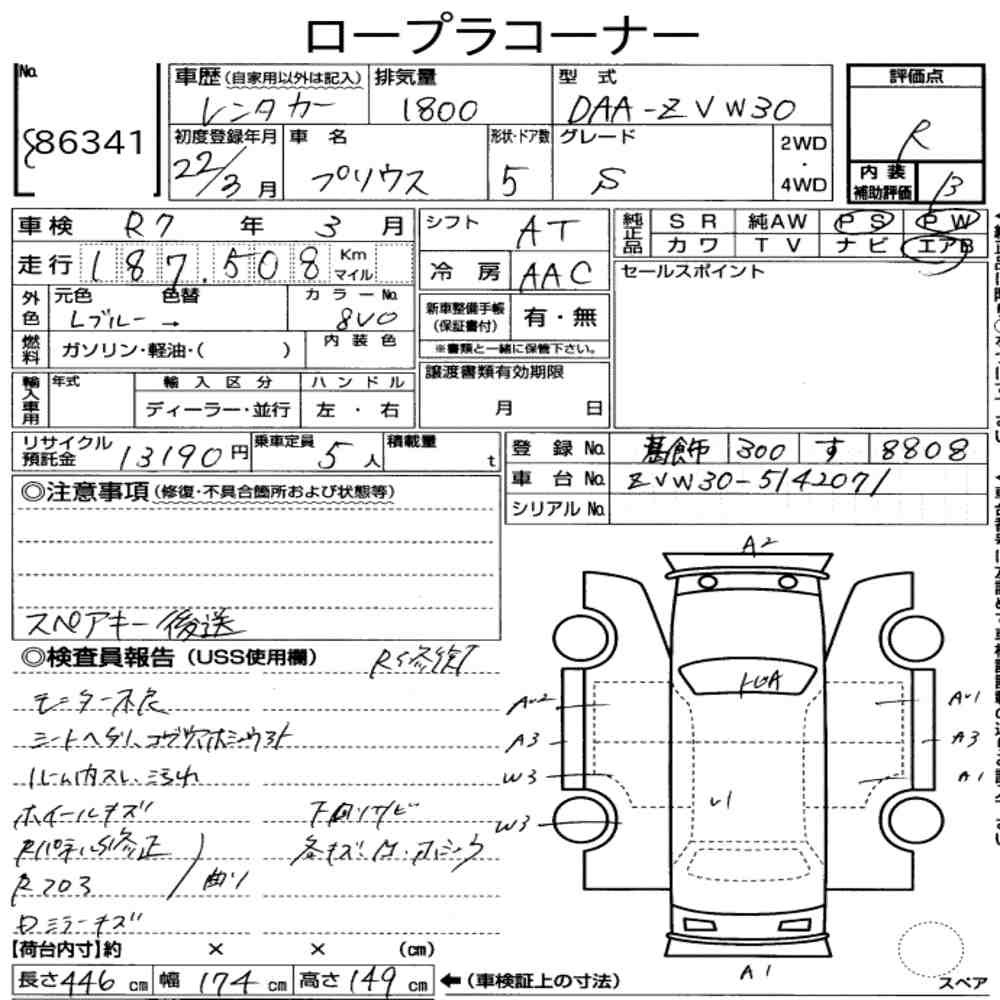 ロープラコーナー
No.
86341
車歴(自家用以外は記入)
レンタカー
排気量
1800
型 式
DAA-ZVW30
評価点
R
初度登録年月
22/3月
車 名
プリウス
形状・ドア数
5
グレード
S
2WD
・
4WD
内装
補助評価
B
車検 R7 年 3 月
シフト AT
純正品
SR 純AW PS PW
カワ TV ナビ エアB
走行 187.508 Km マイル
冷房 AAC
セールスポイント
外色
元色 色替
Lブルー →
カラーNo.
8V0
新車整備手帳
(保証書付)
有・無
※書類と一緒に保管下さい。
燃料
ガソリン・軽油・( )
内装色
輸入車用
年式
輸入区分
ディーラー・並行
ハンドル
左・右
譲渡書類有効期限
月 日
リサイクル
預託金
13190円
乗車定員
5人
積載量
t
登録No. 葛飾 300 す 8808
車台No. ZVW30-5142071
シリアルNo.
◎注意事項(修復・不具合箇所および状態等)
スペアキー後送
◎検査員報告(USS使用欄)
モニター不良
ルーム内スレ、汚れ
ホイールキズ
下回りサビ
曲り
ミラーキズ
A2
A3
W3
W3
A3
A1
A1
【荷台内寸】約 × × (cm)
長さ446cm 幅174cm 高さ149cm
←(車検証上の寸法)
スペア